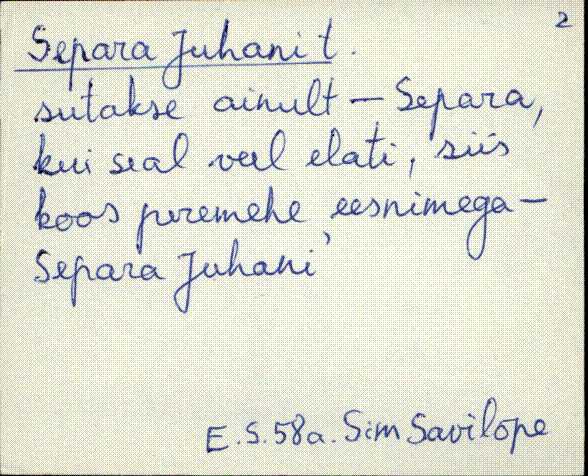 2
Separa Juhani t.
sutakse ainult – Separa,
kui seal veel elati, siis
koos peremehe eesnimega –
Separa Juhani
E.S.58a. Sim Savilope